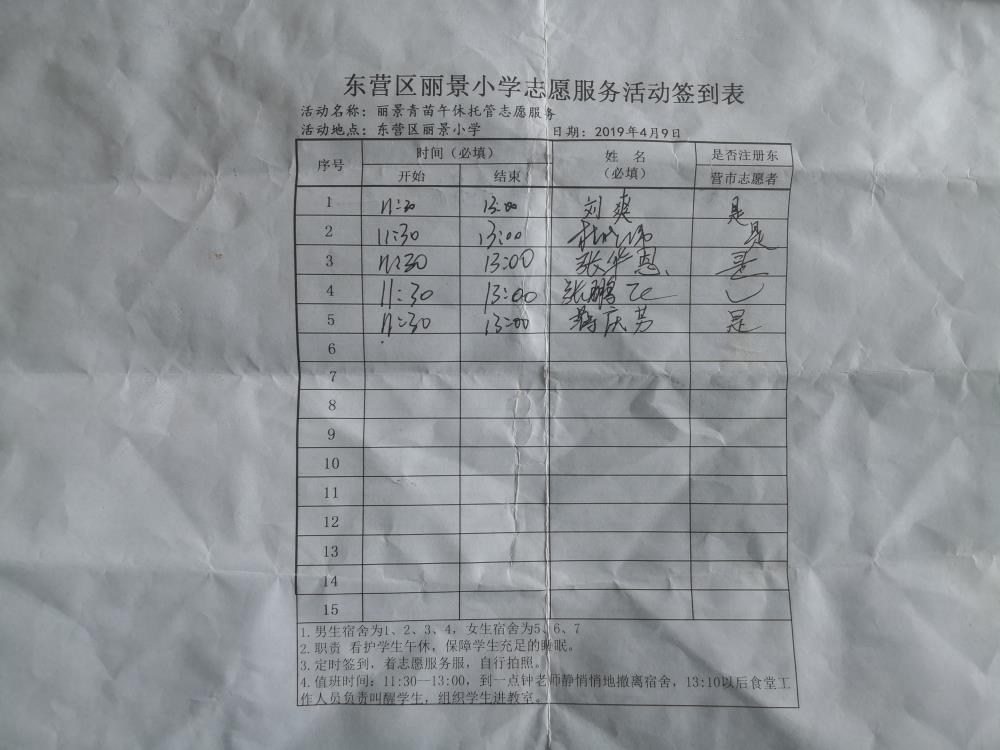 东营区丽景小学志愿服务活动签到表
活动名称：丽景青苗午休托管志愿服务
活动地点：东营区丽景小学 日期：2019年4月9日
序号 时间（必填） 姓名（必填） 是否注册东营市志愿者
开始 结束
1 11:30 13:00 刘爽 是
2 11:30 13:00 是
3 11:30 13:00 张华恩 是
4 11:30 13:00 张鹏飞
5 11:30 13:00 庆芳 是
6
7
8
9
10
11
12
13
14
15
1.男生宿舍为1、2、3、4，女生宿舍为5、6、7
2.职责 看护学生午休，保障学生充足的睡眠。
3.定时签到，着志愿服务服，自行拍照。
4.值班时间：11:30—13:00，到一点钟老师静悄悄地撤离宿舍，13:10以后食堂工
作人员负责叫醒学生，组织学生进教室。